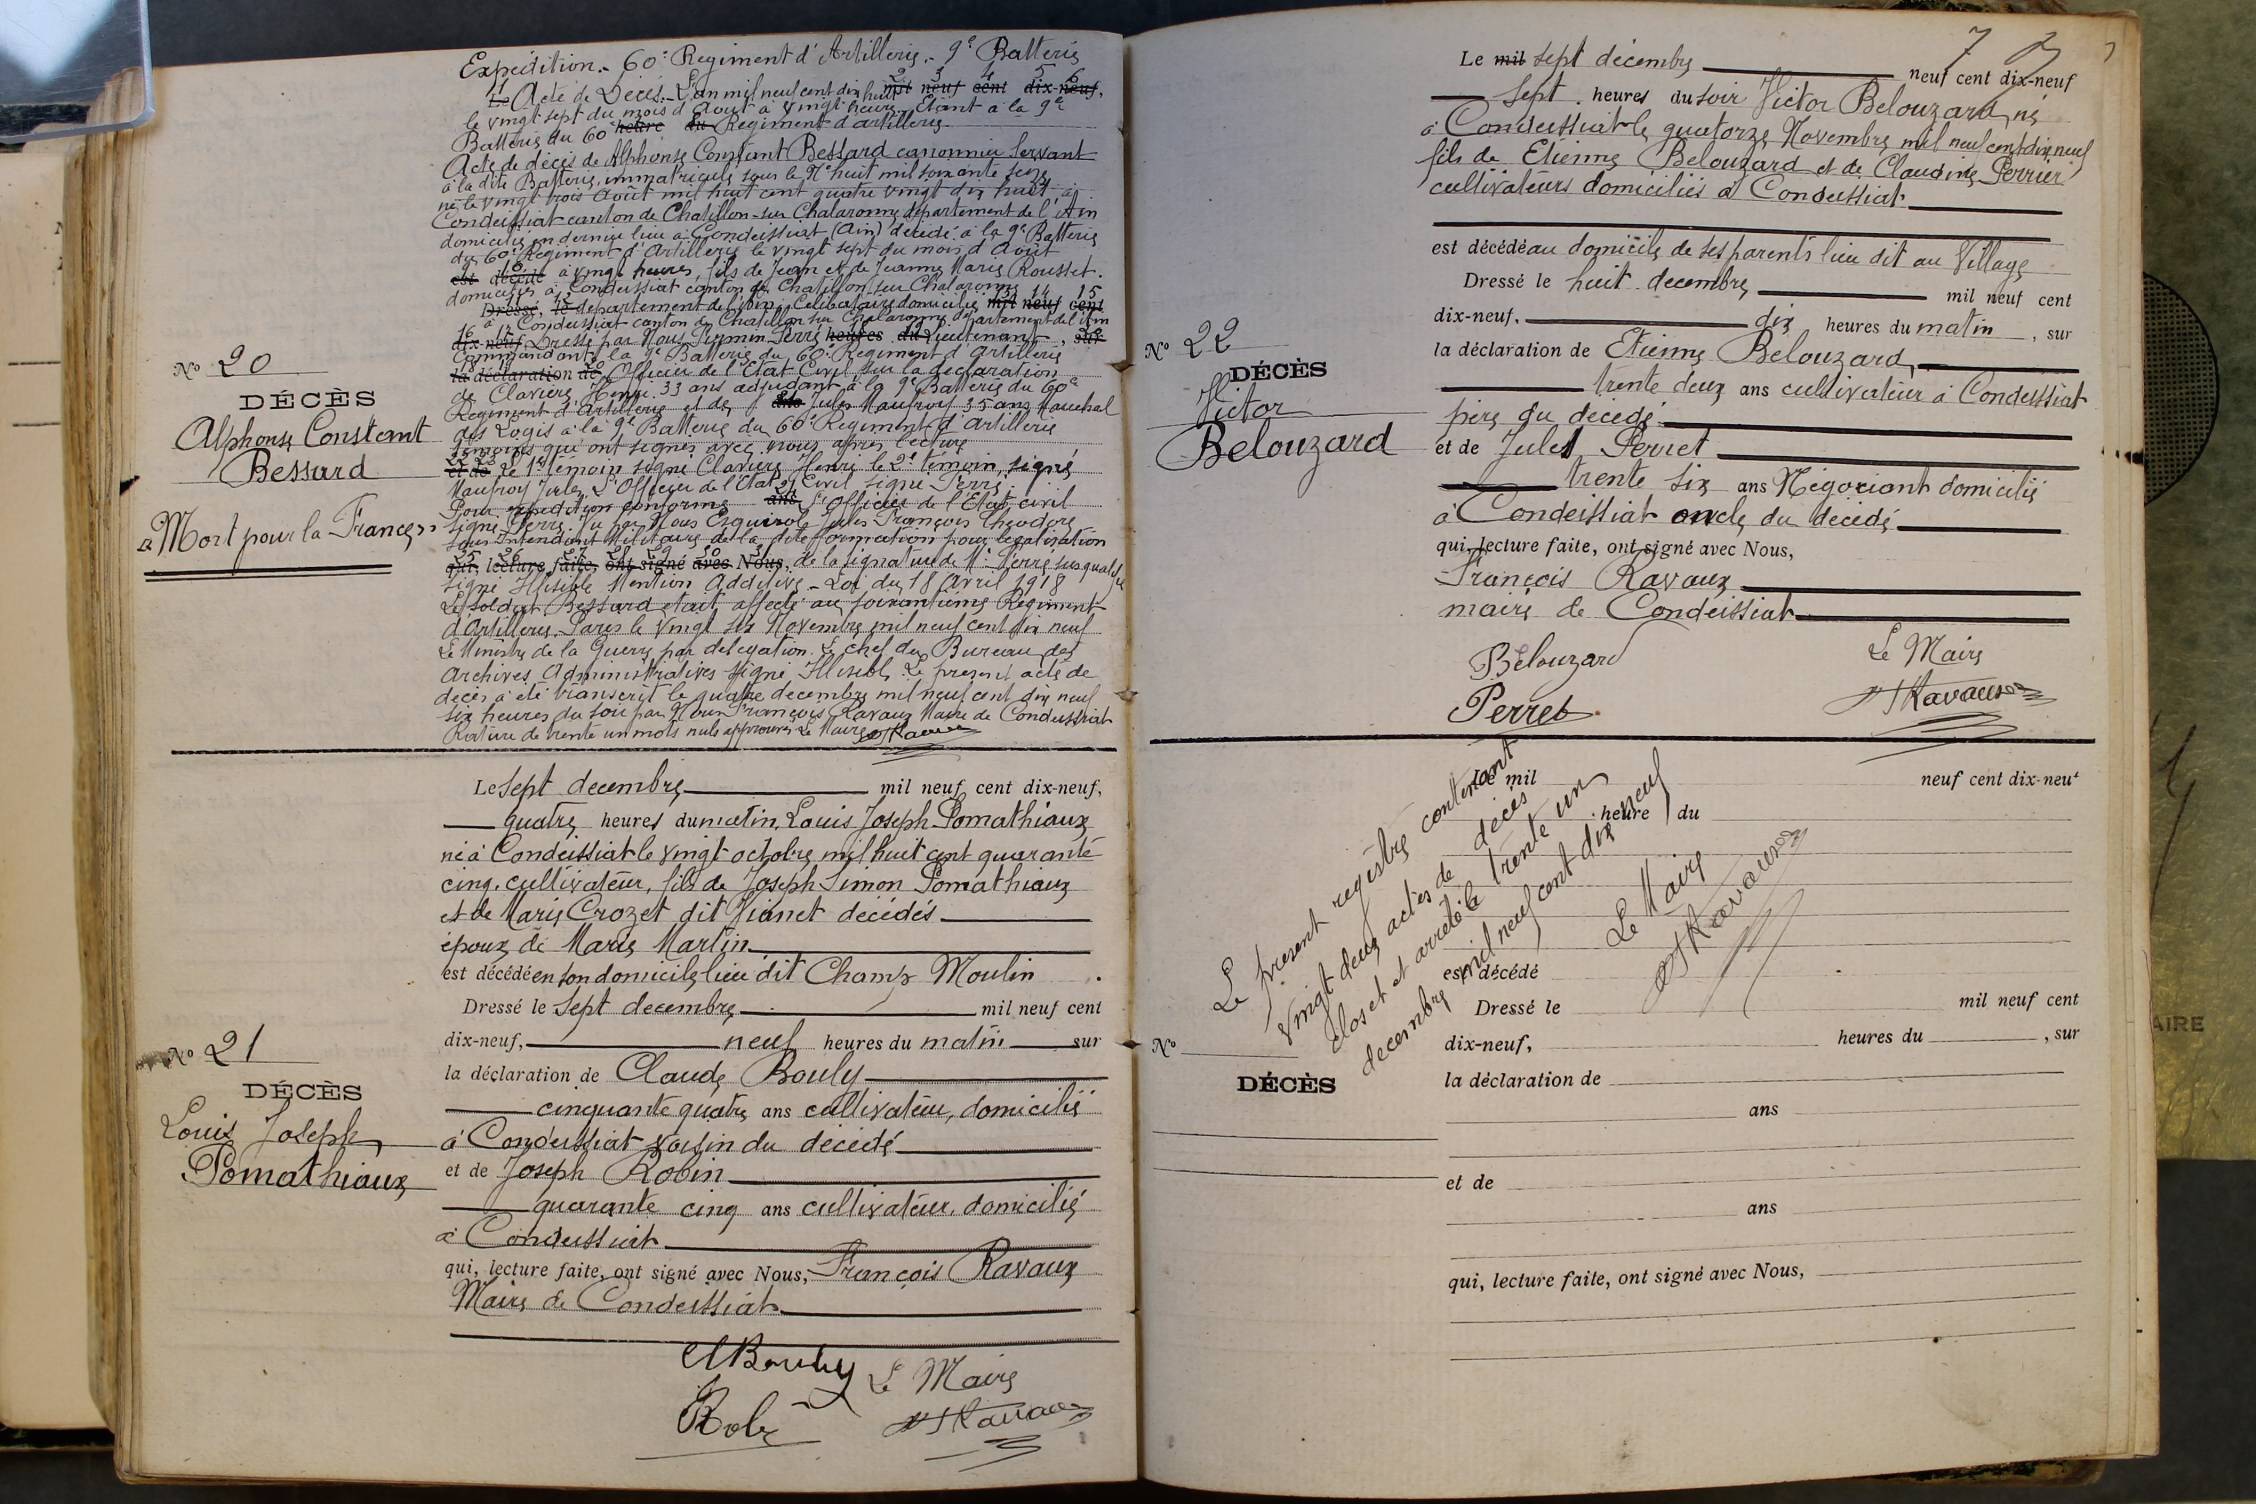 Expédition.- 60e Regiment d'Artillerie.- 9e Batterie
1 2 3 4 5 6
Le Acte de Décès.- L'an mil neuf cent dix huit mil neuf cent dix-neuf,
le vingt sept du mois d'Aout à vingt heures Etant à la 9e
Batterie du 60e heure du Regiment d'artillerie
Acte de décès de Alphonse Constant Bessard canonnier Servant
à la dite Batterie, immatricule sous le No huit mil soixante seize
né le vingt trois Août mil huit cent quatre vingt dix huit, à
Condeissiat canton de Chatillon-sur Chalaronne département de l'Ain
domicilié en dernier lieu à Condeissiat (Ain) décédé à la 9e Batterie
du 60e Regiment d'Artillerie le vingt sept du mois d'Août
est décédé à vingt heures, fils de Jean et de Jeanne Marie Rousset.
domiciliés à Condeissiat canton de Chatillon sur Chalaronne 13 14 15
Dressé, le département de l'Ain. Celibataire domicilié mil neuf cent
à Condeissiat canton de Chatillon sur Chalaronne département de l'Ain
16 17
dix-neuf, Dressé par Nous Serré heures du Lieutenant, sur
Commandant la 9e Batterie du 60e Regiment d'Artillerie
la déclaration de Officier de l'Etat Civil sur la declaration
de Claviere, Henri. 33 ans adjudant à la 9e Batterie du 60e
Regiment d'Artillerie et de, ans Jules Maufroy 35 ans Marechal
des Logis à la 9e Batterie du 60e Regiment d'Artillerie
témoins qui ont signés avec nous après lecture
et de Le 1er témoin signé Claviere Henri le 2e témoin, signé
Maufroy Jules, L'Officier de l'Etat Civil signé Serré.
Pour expedition conforme ans L'Officier de l'Etat civil
signé Serré. Vu par Nous Esquirole Jules François Theodore
Sous Intendant Militaire de la dite formation pour legalisation
25 26 27 28 29 30 31
qui, lecture faite, ont signé avec Nous, de la signature de Mr Serré susqualifié
signé Illisible Mention Additive - Loi du 18 Avril 1918
Le soldat Bessard etait affecté au soixantième Regiment
d'Artillerie. Paris le vingt six Novembre mil neuf cent dix neuf
Le Ministre de la Guerre par delegation. Le chef du Bureau des
Archives Administratives signé Illisible. Le present acte de
decès a été transcrit le quatre decembre mil neuf cent dix neuf
six heures du soir par Nous François Ravaux Maire de Condeissiat
Rature de trente un mots nuls approuvés Le Maire Ravaux
No 20
DÉCÈS
Alphonse Constant
Bessard
"Mort pour la France"
Le sept decembre mil neuf cent dix-neuf,
quatre heures du matin, Louis Joseph Pomathiaux
né à Condeissiat le vingt octobre mil huit cent quarante
cinq, cultivateur, fils de Joseph Simon Pomathiaux
et de Marie Crozet dit Vianet décédés
époux de Marie Martin
est décédé en son domicile lieu dit Champ Moulin
Dressé le sept decembre mil neuf cent
dix-neuf, neuf heures du matin sur
la déclaration de Claude Bouly
cinquante quatre ans cultivateur, domicilié
à Condeissiat voisin du décédé
et de Joseph Robin
quarante cinq ans cultivateur, domicilié
à Condeissiat
qui, lecture faite, ont signé avec Nous, François Ravaux
Maire de Condeissiat
No 21
DÉCÈS
Louis Joseph
Pomathiaux
Bouly Le Maire
Robin Ravaux
7
Le mil sept décembre neuf cent dix-neuf
sept heures du soir Victor Belouzard, né
à Condeissiat le quatorze Novembre mil neuf cent dix neuf
fils de Etienne Belouzard et de Claudine Perrier
cultivateurs domiciliés à Condeissiat
est décédé au domicile de ses parents lieu dit au Village
Dressé le huit decembre mil neuf cent
dix-neuf, dix heures du matin, sur
la déclaration de Etienne Belouzard,
trente deux ans cultivateur à Condeissiat
père du décédé
et de Jules Perret
trente six ans Négociant domicilié
à Condeissiat oncle du décédé
qui, lecture faite, ont signé avec Nous,
François Ravaux
maire de Condeissiat
No 22
DÉCÈS
Victor
Belouzard
Belouzard Le Maire
Perret Ravaux
Le present registre contenant
vingt deux actes de décès
clos et arrêté le trente un
decembre mil neuf cent dix neuf
Le Maire
Ravaux
Le mil neuf cent dix-neuf
heure du
est décédé
Dressé le mil neuf cent
dix-neuf, heures du , sur
la déclaration de
ans
et de
ans
qui, lecture faite, ont signé avec Nous,
No
DÉCÈS